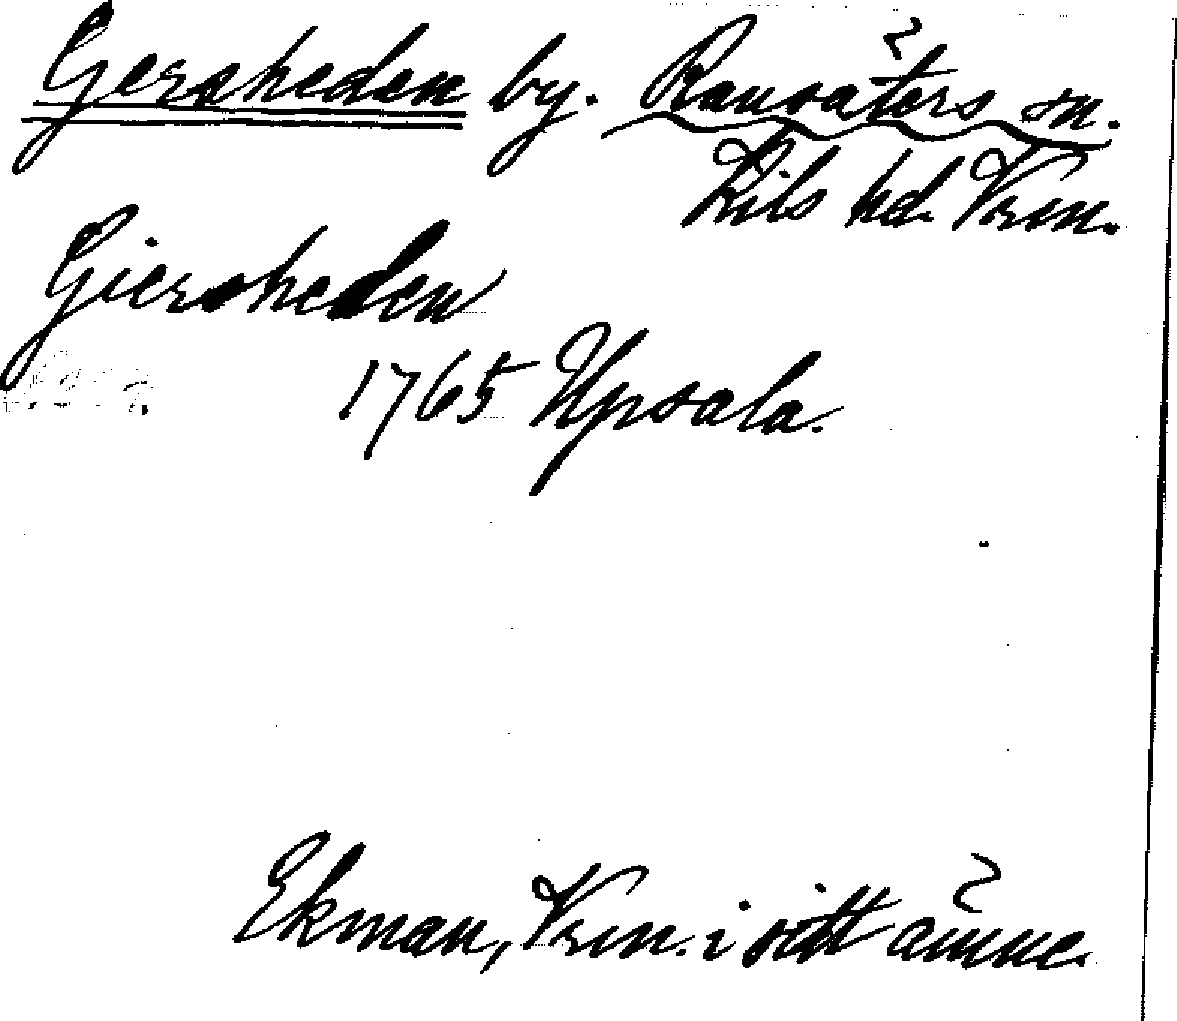 Gersheden by. Ransäters sn.
Kils hd. Vrm.
Giersheden
1765 Upsala.
Ekman, Vrm. i sitt ämne.